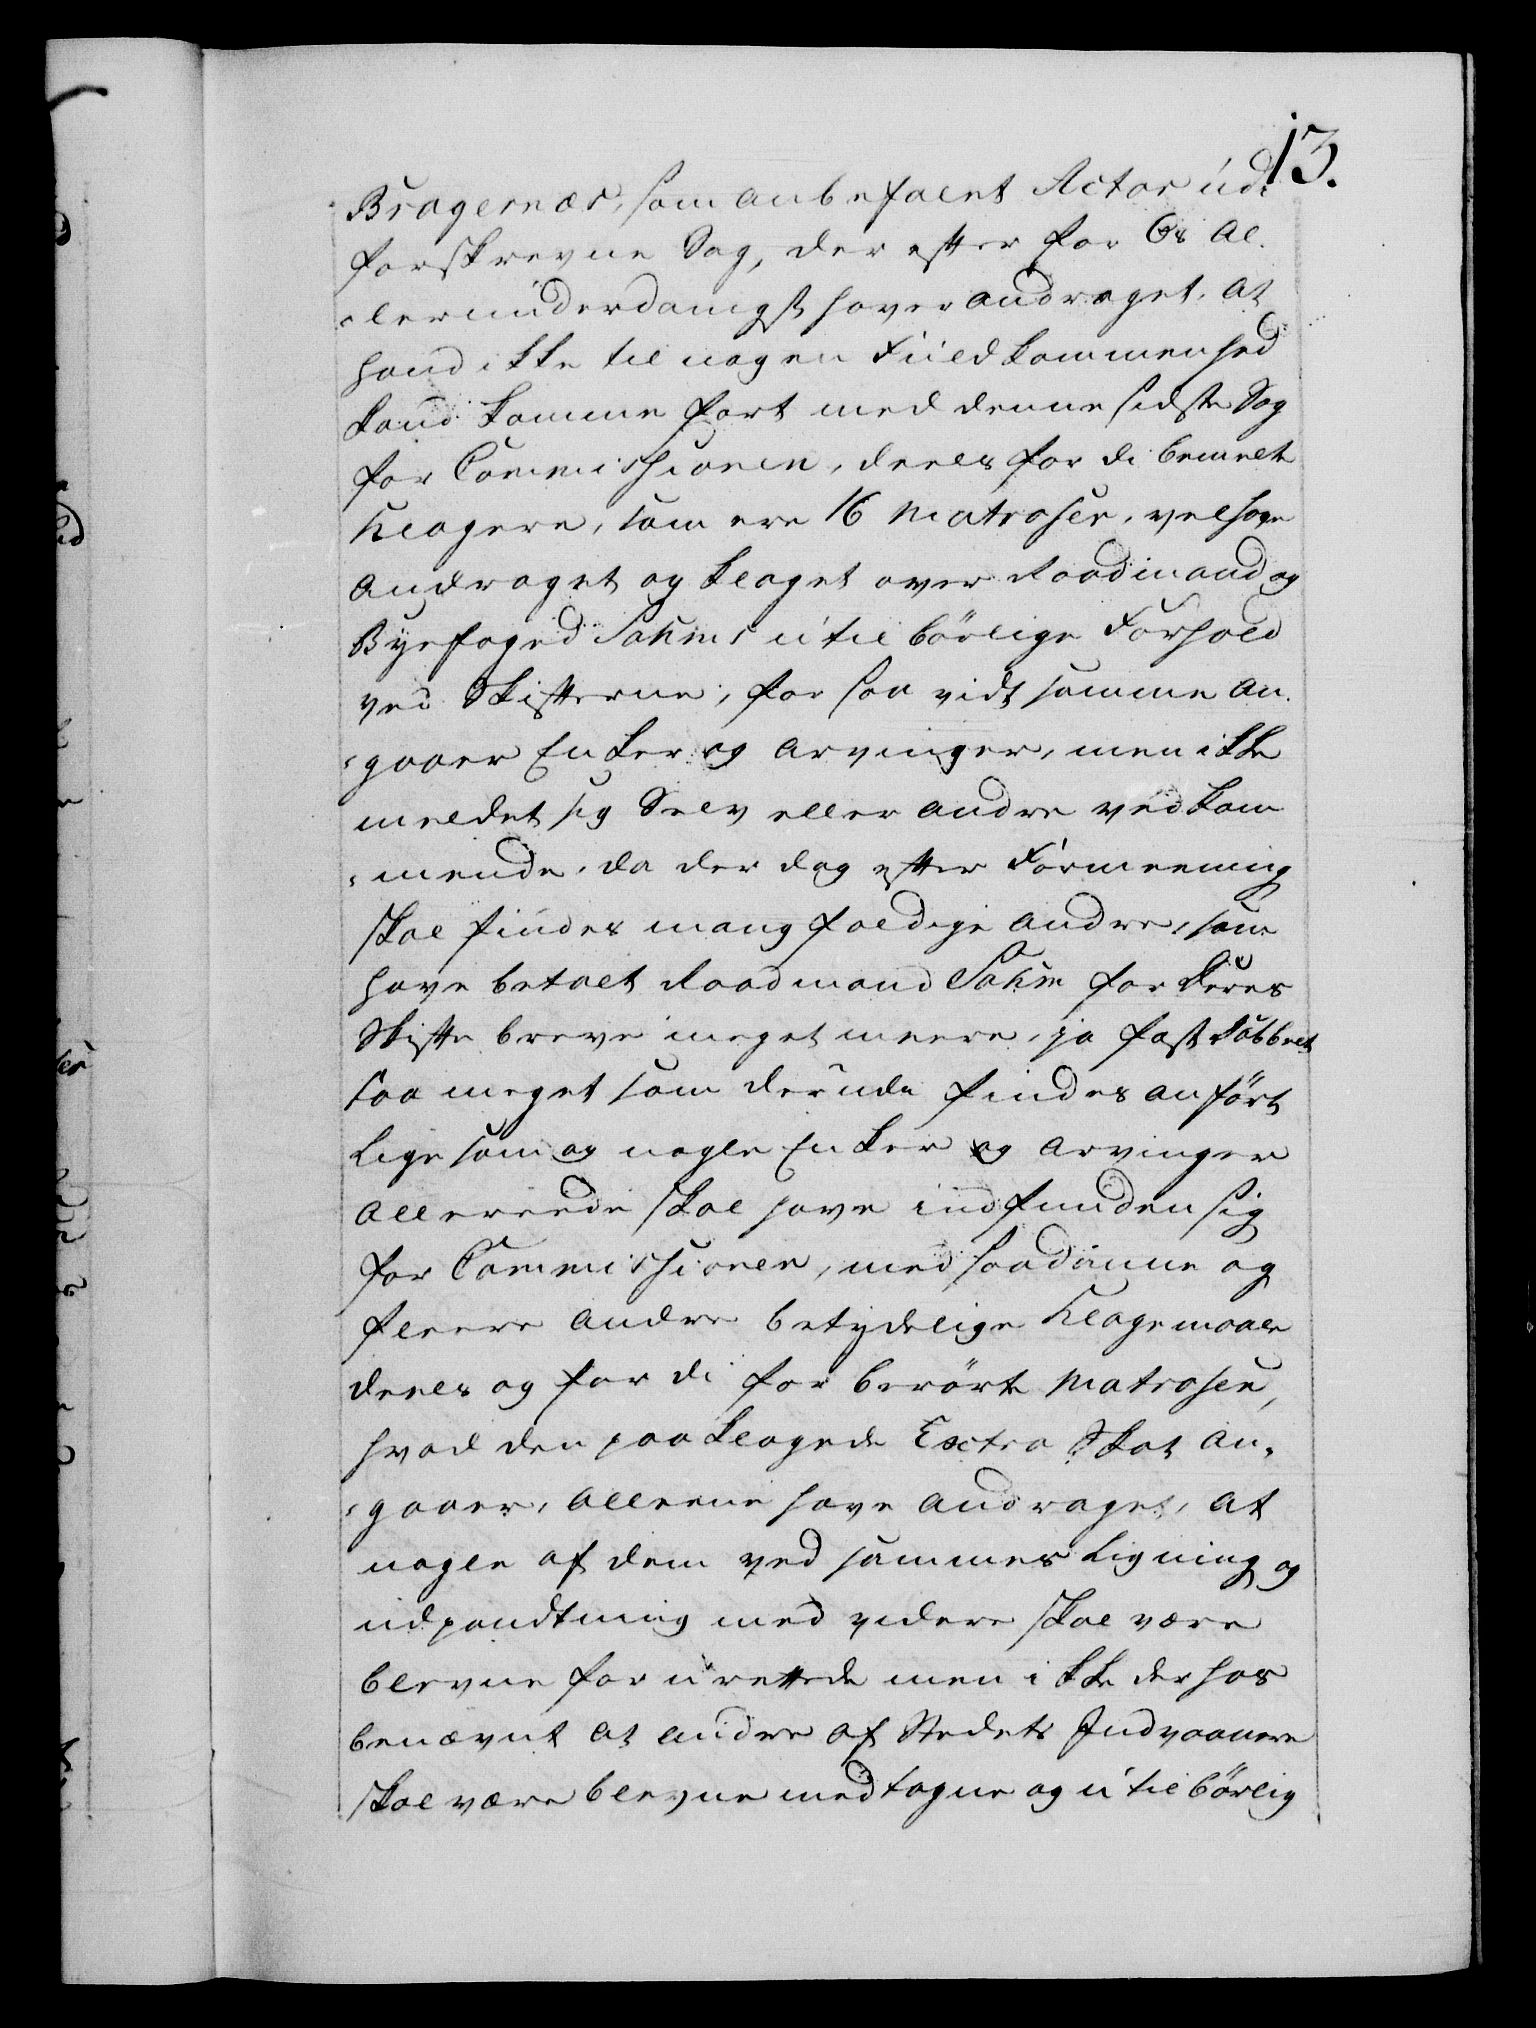 13.
Bragernæs, som anbefalet Actor udi
forskrevne Sag, der efter for Os Al-
-lerunderdanigst haver andraget, at
hand ikke til nogen Fuldkommenhed
kand komme fort med denne sidste Sag
for Commissionen, deels fordi bemelte
Klagere, som ere 16 Matroser, vel have
andraget og klaget over Raadmand og
Byefoged Sahms utilbörlige Forhold
ved Skifterne, for saa vidt samme an-
-gaaer Enker og Arvinger, men ikke
meldet sig Selv eller andre vedkom
-mende, da der dog efter Formeening
skal findes mangfoldige andre, som
have betalt Raadmand Sahm for deres
Skifte breve meget meere, ja fast dobbelt
saa meget som derudi findes anfört
ligesom og nogle Enker og Arvinger
allereede skal have indfunden sig
for Commissionen, med saadanne og
fleere andre betydelige Klagemaale
deels og fordi forberörte Matroser,
hvad den paaklagede Extra Skat an-
-gaaer, alleene have andraget, at
nogle af dem ved sammes Ligning og
udpandtning med videre skal være
blevne forurettede men ikke derhos
benævnt at andre af Stedets Indvaanere
skal være blevne medtagne og utilbörlig